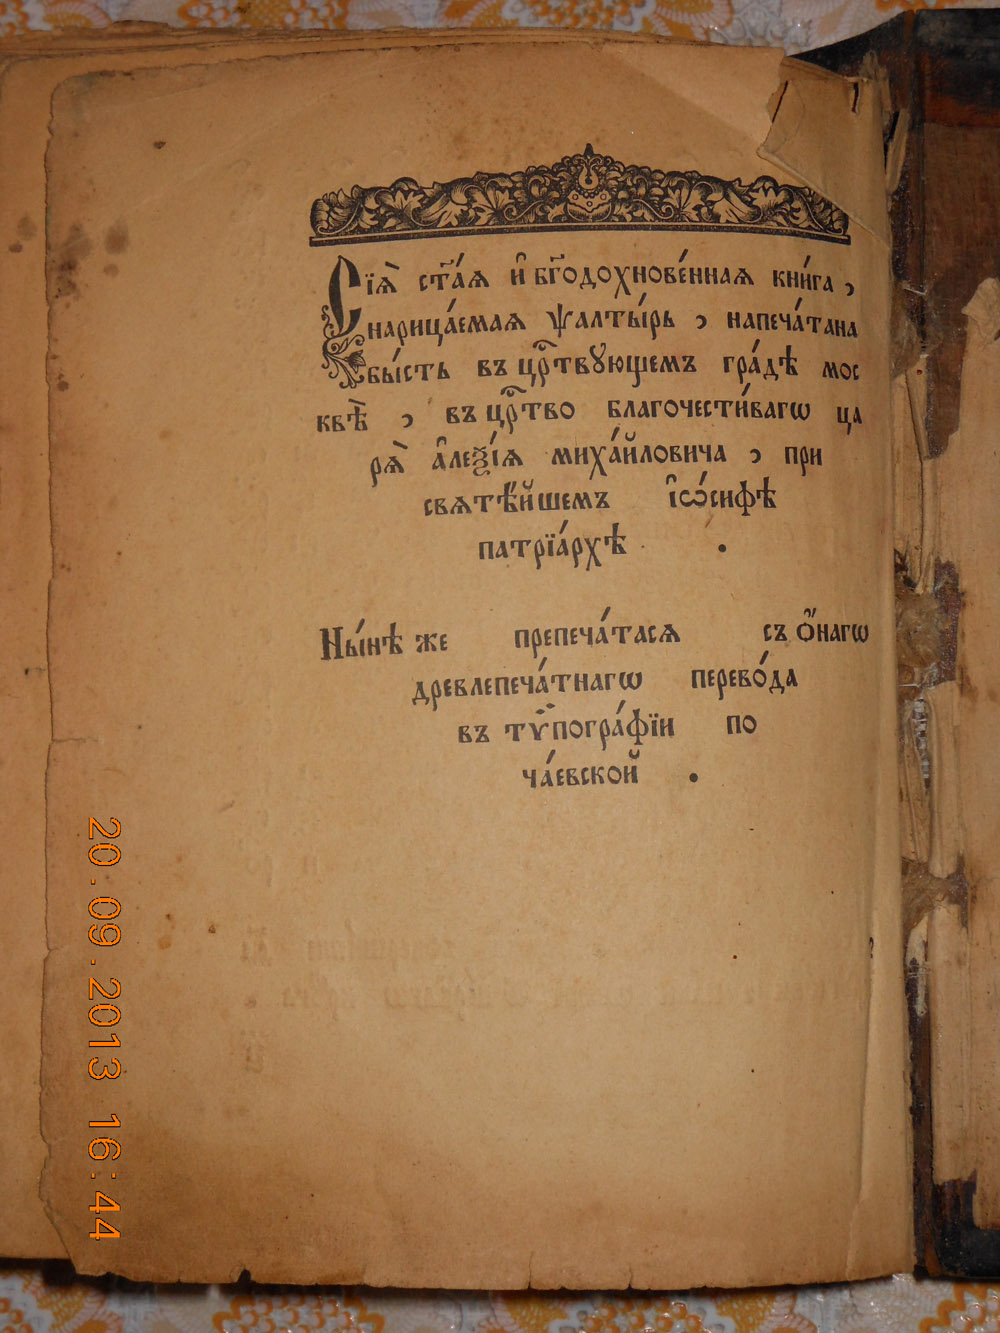 Сїѧ̀ ст҃а́ѧ и҆ бг҃одохнове́ннаѧ кни́га ,
нарица́емаѧ ѱалты́рь , напеча́тана
бы́сть въ црⷭ҇твꙋющемъ гра́дѣ мос
квѣ̀ , въ црⷭ҇тво благочести́вагѡ ца
рѧ̀ а҆леѯі́ѧ миха́йловича , при
свѧтѣ́йшемъ і҆ѡ́сифѣ
патрїа́рхѣ .
Ны́нѣ же препеча́тасѧ съ о҆́нагѡ
древлепеча́тнагѡ перево́да
въ тѷпогра́фїи по
ча́евской .
20.09.2013 16:44